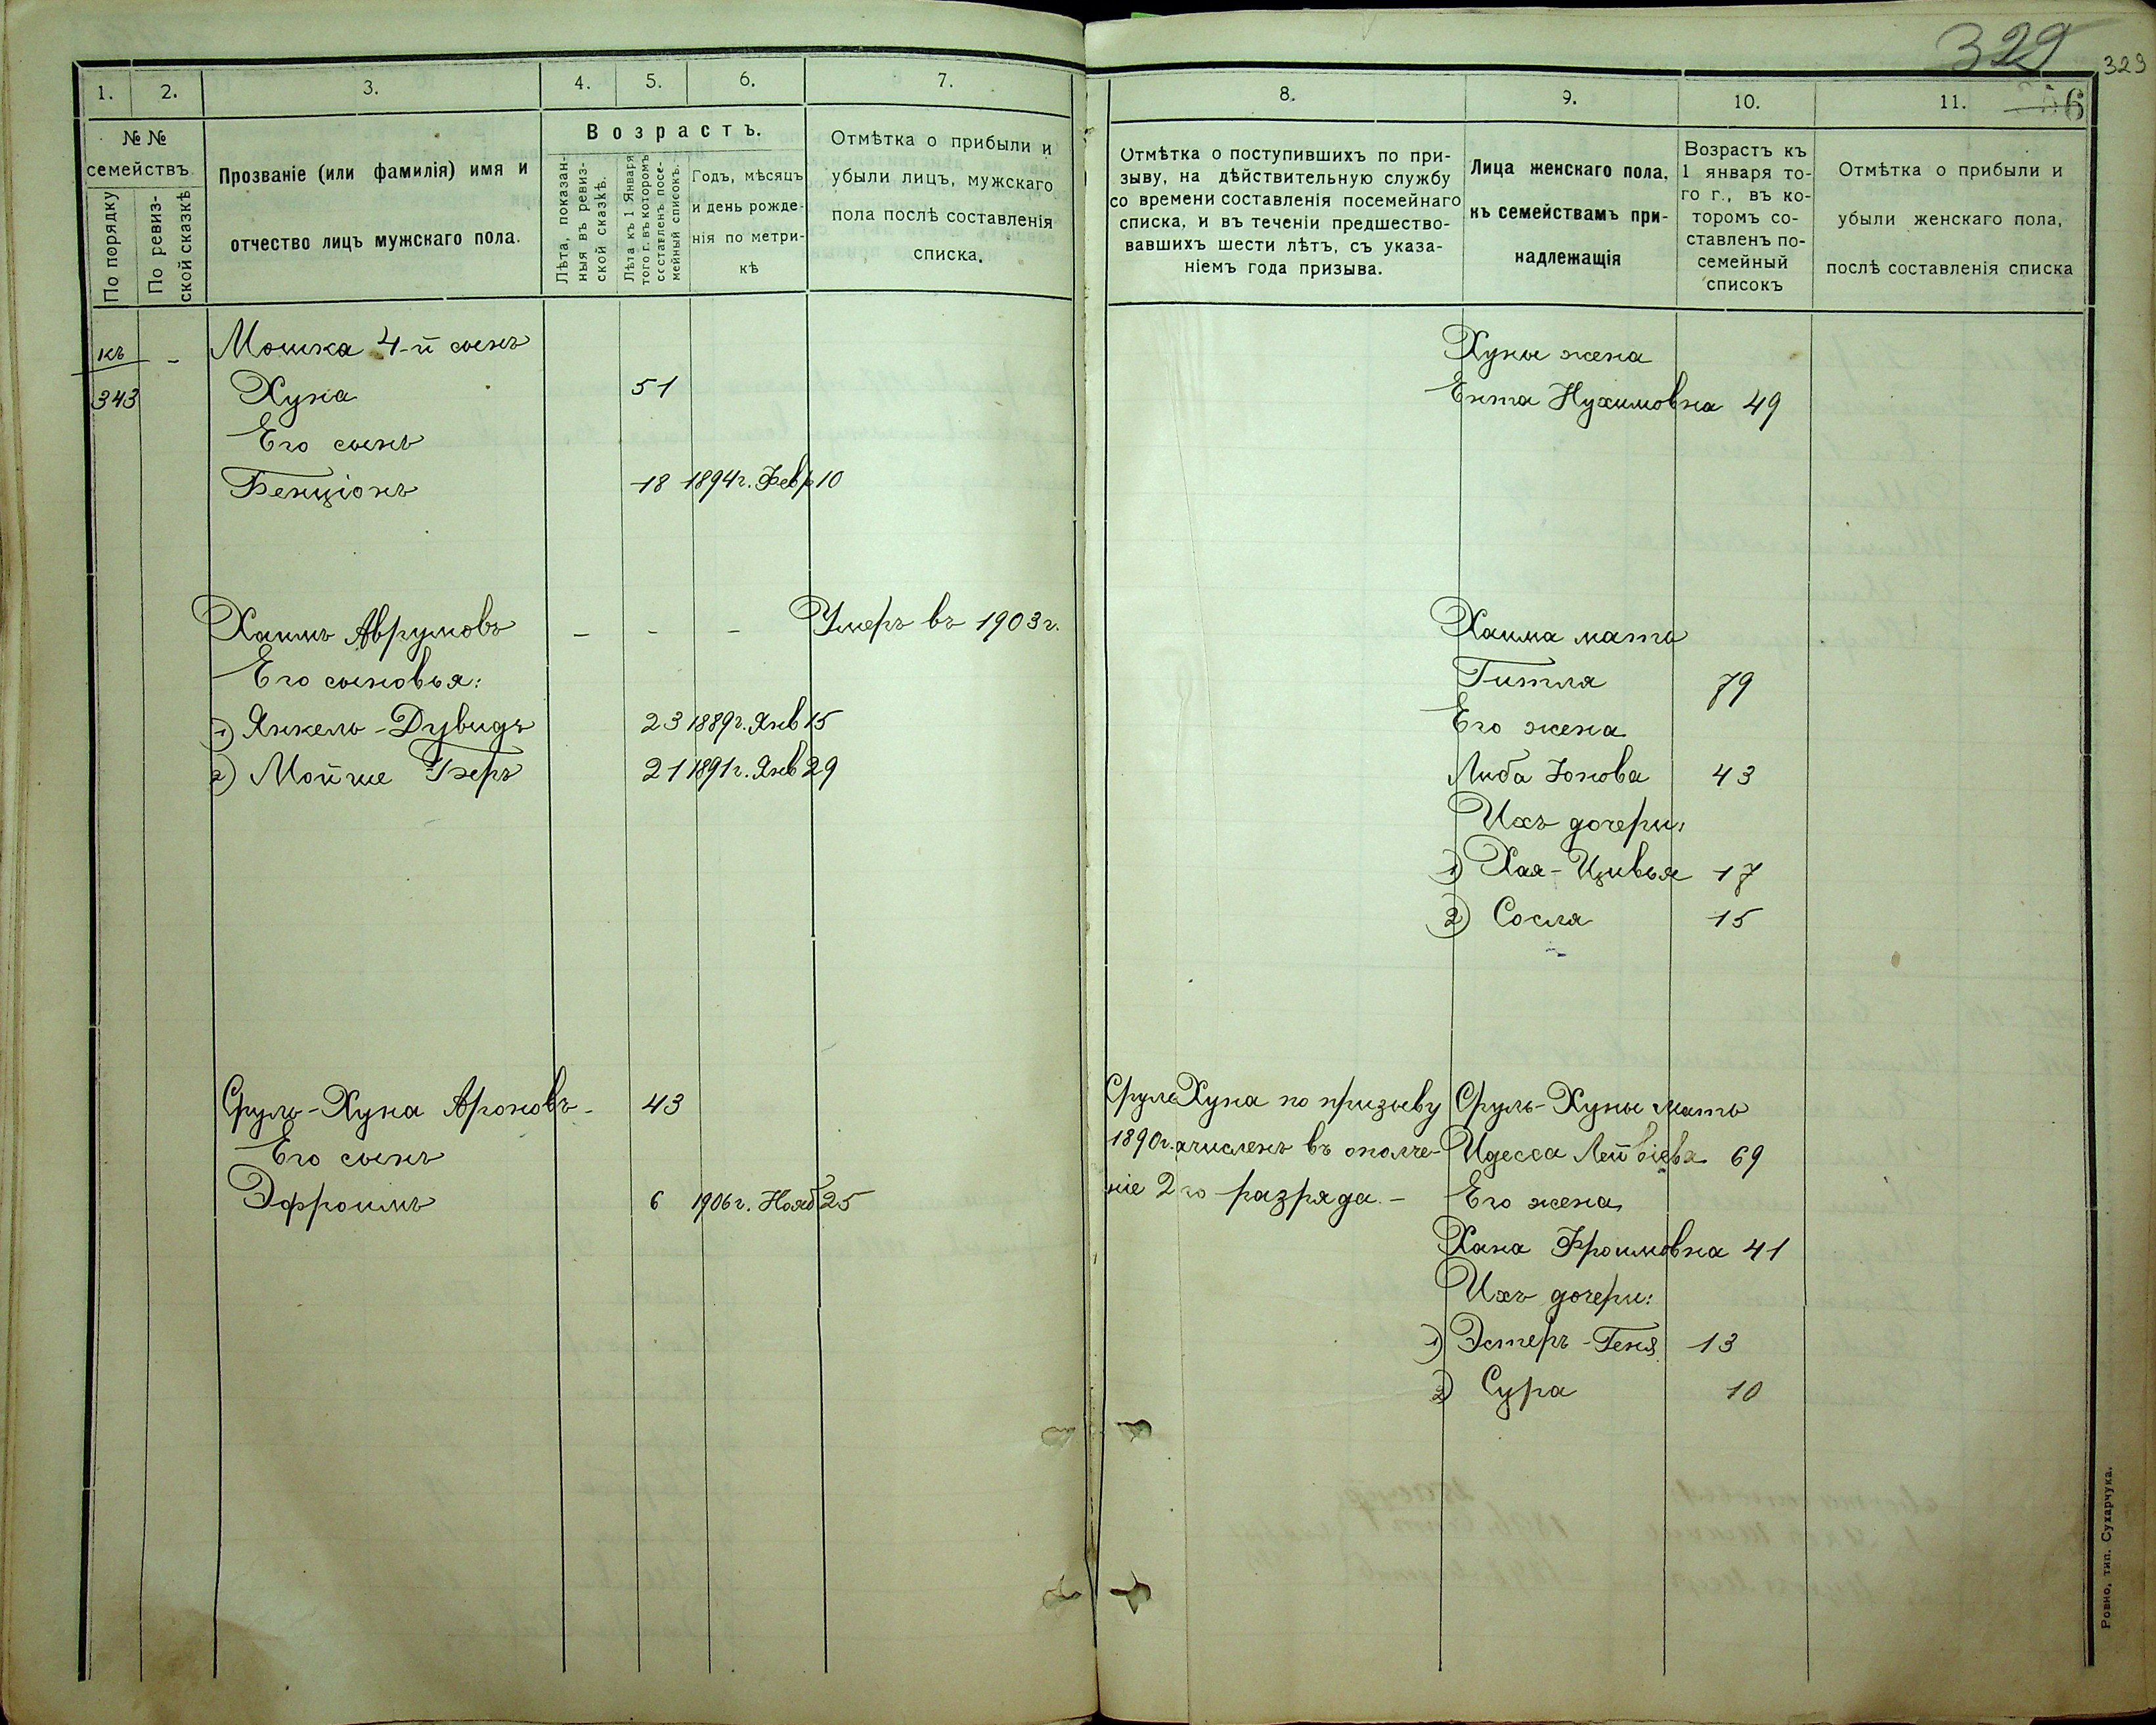 329
329
1. 2. 3. 4. 5. 6. 7.
№ № семействъ.
По порядку
По ревиз-
ской сказкѣ
Прозваніе (или фамилія) имя и
отчество лицъ мужскаго пола.
Возрастъ.
Лѣта, показан-
ныя въ ревиз-
ской сказкѣ.
Лѣта къ 1 Января
того г. въ которомъ
составленъ посе-
мейный списокъ.
Годъ, мѣсяцъ
и день рожде-
нія по метри-
кѣ
Отмѣтка о прибыли и
убыли лицъ, мужскаго
пола послѣ составленія
списка.
къ - Мошка 4-й сынъ
343 Хуна 51
Его сынъ
Бенціонъ 18 1894г. Февр 10
Хаимъ Аврумовъ - - - Умеръ въ 1903г.
Его сыновья:
1) Янкель-Дувидъ 23 1889г. Янв 15
2) Мойше Беръ 21 1891г. Янв 29
Сруль-Хуна Ароновъ - 43
Его сынъ
Эфроимъ 6 1906г. Нояб 25
8. 9. 10. 11. 6
Отмѣтка о поступившихъ по при-
зыву, на дѣйствительную службу
со времени составленія посемейнаго
списка, и въ теченіи предшество-
вавшихъ шести лѣтъ, съ указа-
ніемъ года призыва.
Лица женскаго пола,
къ семействамъ при-
надлежащія
Возрастъ къ
1 января то-
го г., въ ко-
торомъ со-
ставленъ по-
семейный
списокъ
Отмѣтка о прибыли и
убыли женскаго пола,
послѣ составленія списка
Хуны жена
Ента Нухимовна 49
Хаима мать
Гитля 79
Его жена
Либа Юнова 43
Ихъ дочери:
1) Хая-Цивья 17
2) Сосля 15
Сруль Хуна по призыву Сруль-Хуны мать
1890г. зачисленъ въ ополче- Идесса Лейбіева 69
ніе 2го разряда. - Его жена
Хана Фроимовна 41
Ихъ дочери:
1) Эстеръ-Геня 13
2) Сура 10
Ровно, тип. Сухарчука.